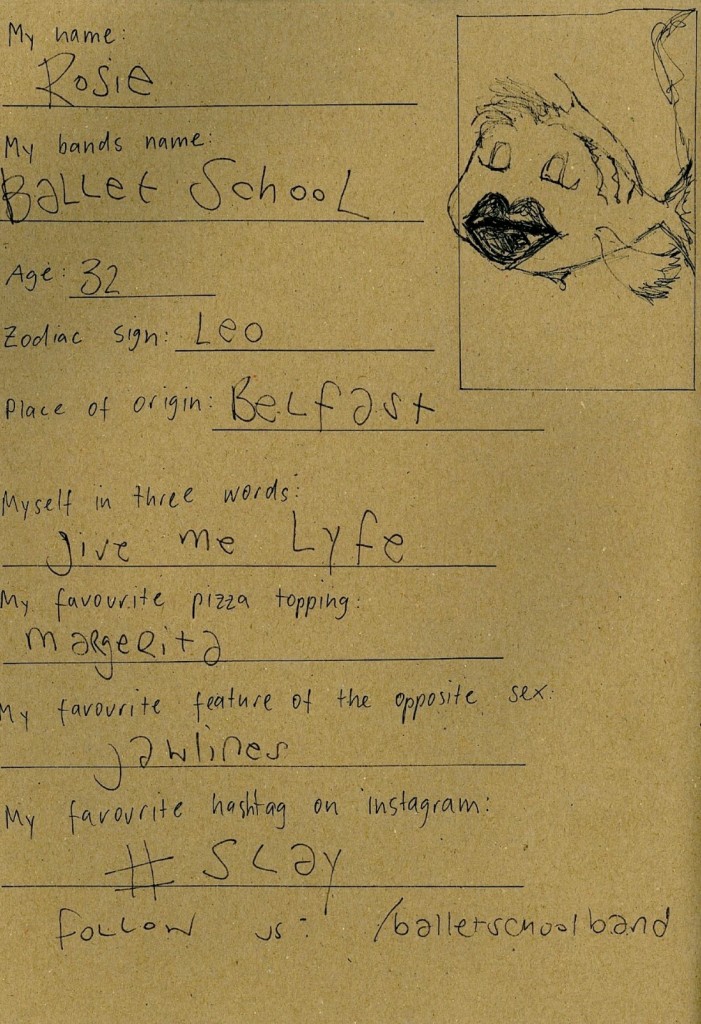 My name:
Rosie
My bands name:
Ballet School
Age: 32
Zodiac sign: Leo
Place of origin: Belfast
Myself in three words:
give me Lyfe
My favourite pizza topping:
margerita
My favourite feature of the opposite sex:
jawlines
My favourite hashtag on instagram:
# SLay
Follow us: /balletschoolband